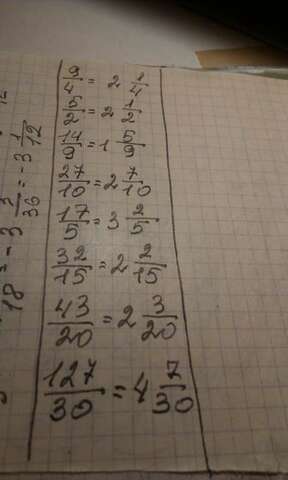 9/4 = 2 1/4
5/2 = 2 1/2
14/9 = 1 5/9
27/10 = 2 7/10
17/5 = 3 2/5
32/15 = 2 2/15
43/20 = 2 3/20
127/30 = 4 7/30
18 = -3 3/36 = -3 1/12